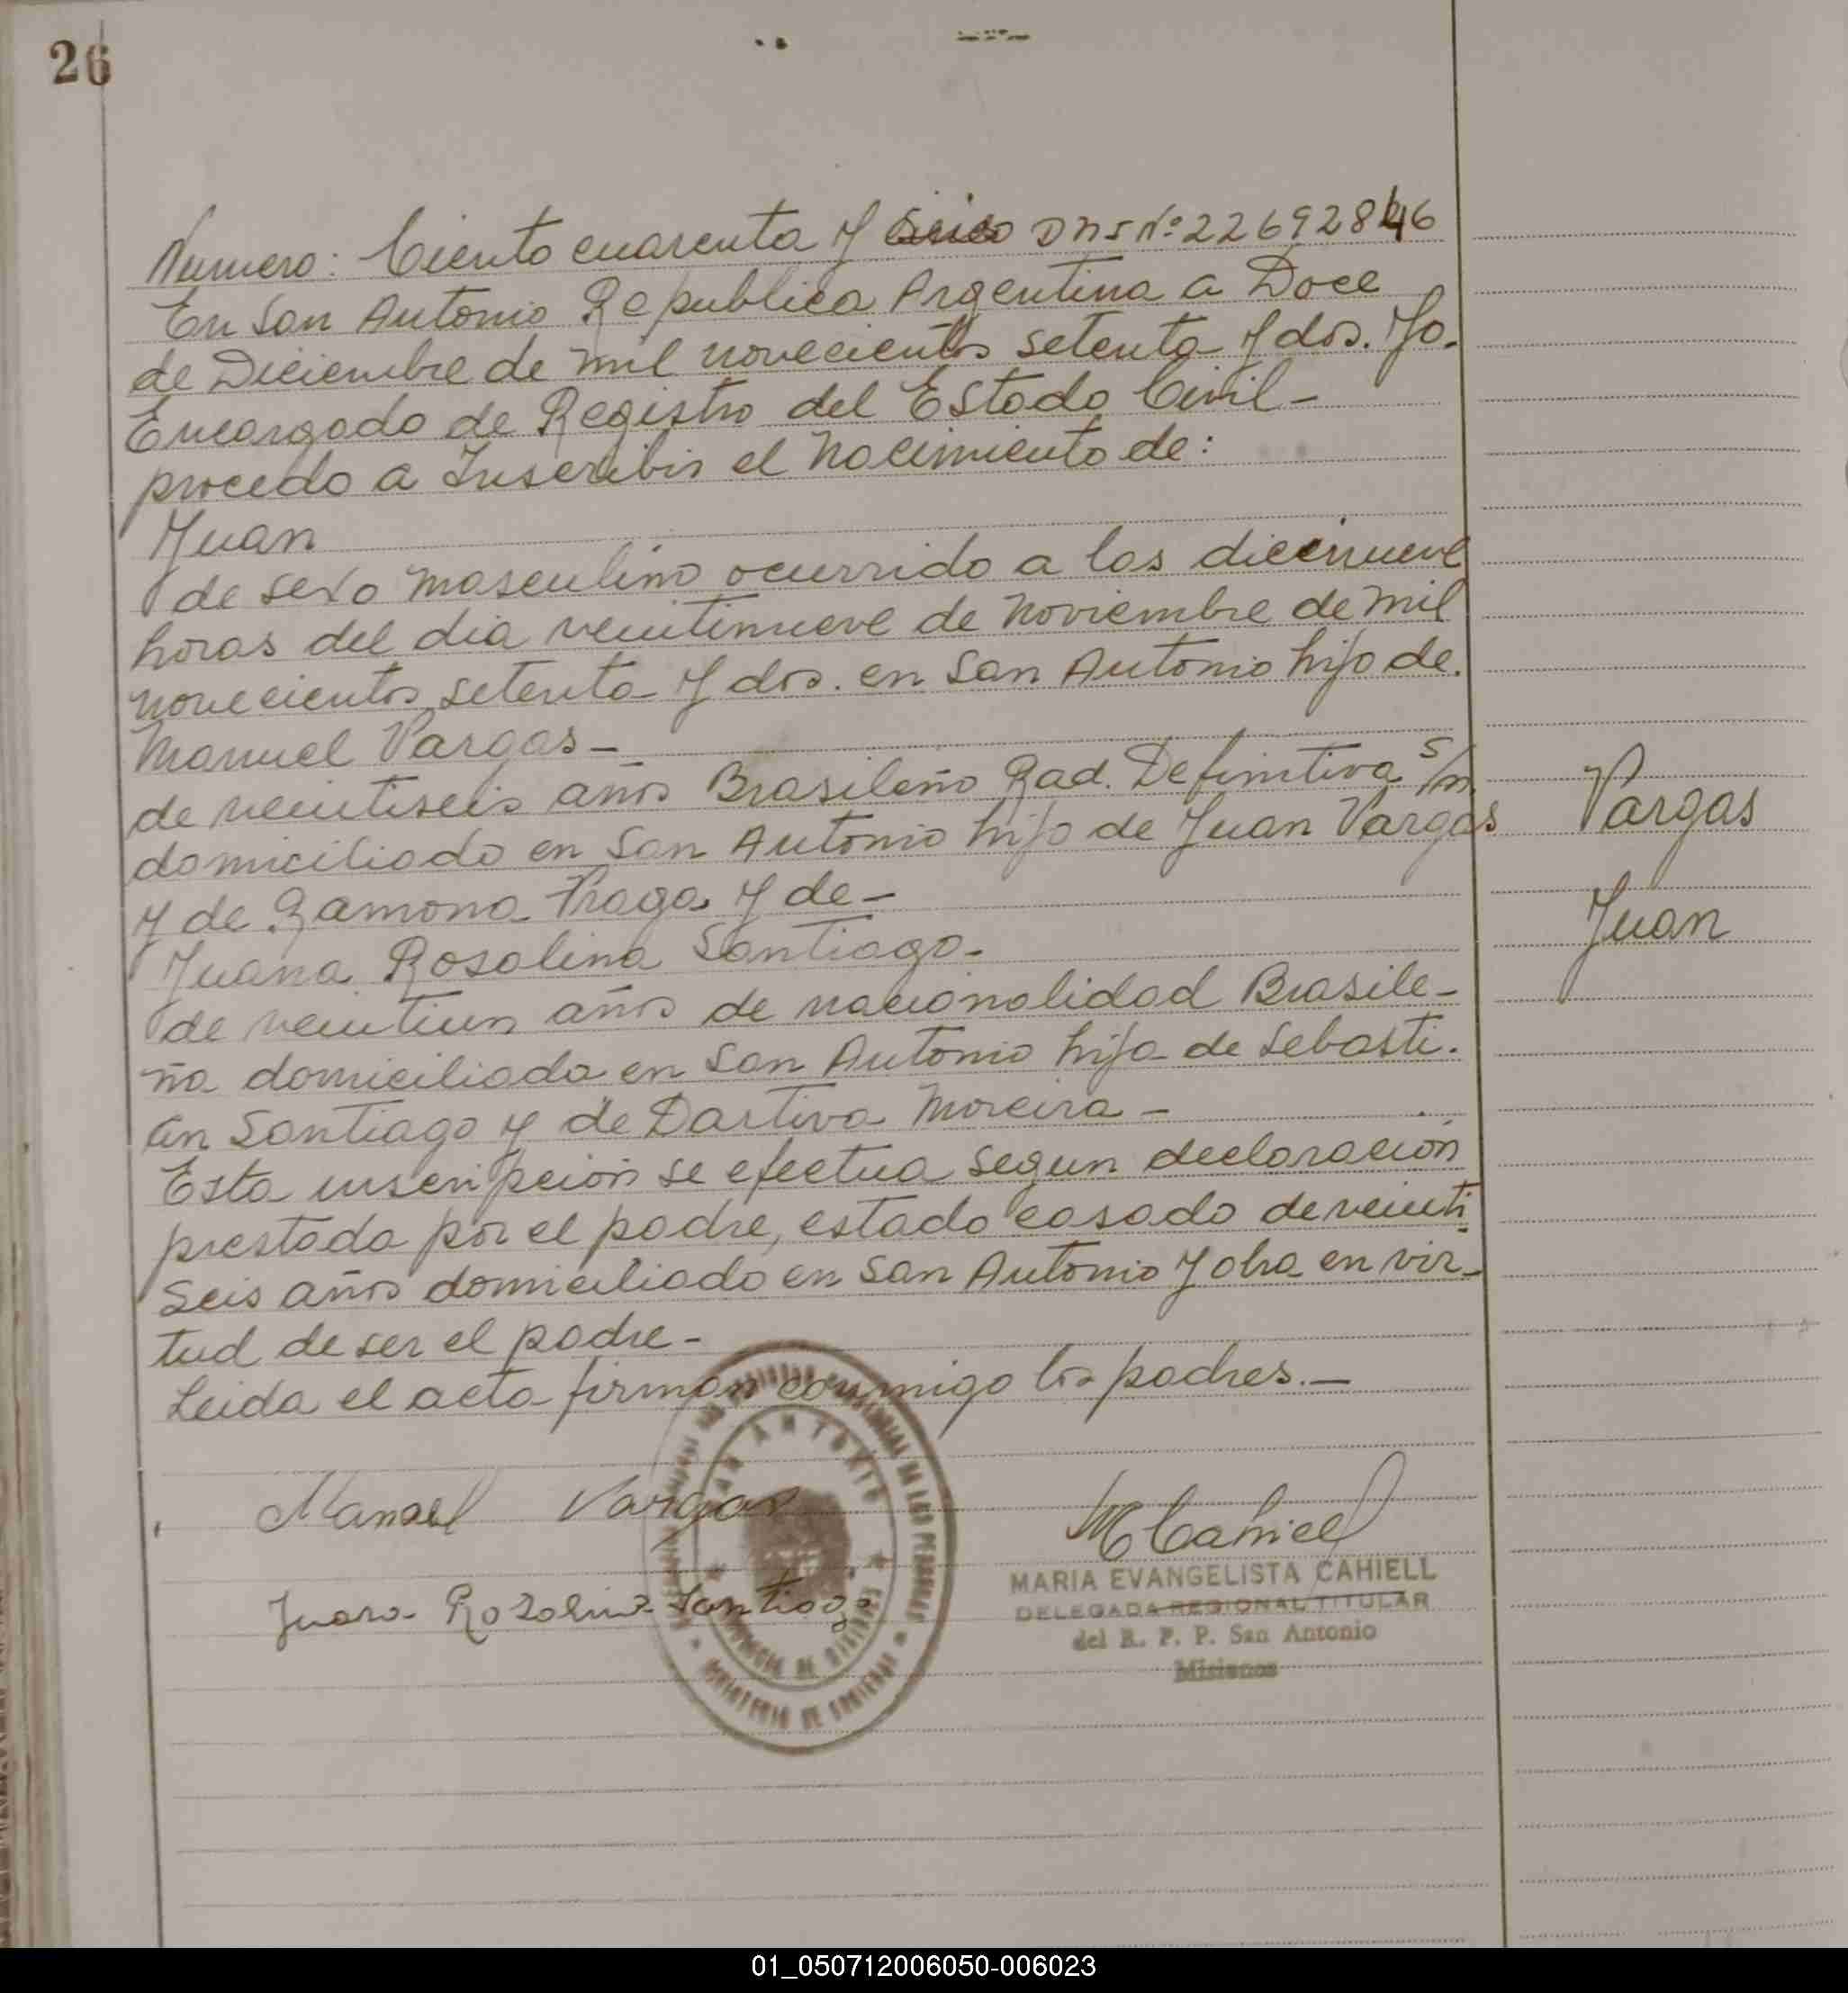 26
Numero: Ciento cuarenta y Cinco DNI Nº 22692846
En San Antonio Republica Argentina a Doce
de Diciembre de mil novecientos setenta y dos. Yo.
Encargado de Registro del Estado Civil-
procedo a Inscribir el Nacimiento de:
Juan
de sexo masculino ocurrido a las diecinueve
horas del dia veintinueve de Noviembre de mil
novecientos setenta y dos. en San Antonio hijo de.
Manuel Vargas-
de veintiseis años Brasileño Rad. Definitiva s/n.
domiciliado en San Antonio hijo de Juan Vargas
Vargas
y de Ramona Fraga y de-
Juan
Juana Rosalina Santiago-
de veintiun años de nacionalidad Brasile-
ña domiciliada en San Antonio hija de Sebasti.
an Santiago y de Dartiva Moreira-
Esta inscripción se efectua segun declaración
prestada por el padre, estado casado de veinti
seis años domiciliado en San Antonio y obra en vir-
tud de ser el padre-
Leida el acta firman conmigo los padres.-
SAN ANTONIO
DE LAS PERSONAS
Manoel Vargas
M Cahiell
MARIA EVANGELISTA CAHIELL
DELEGADA REGIONAL TITULAR
Juana Rozalina Santiago
del R. P. P. San Antonio
Misiones
MINISTERIO DE GOBIERNO
01_050712006050-006023